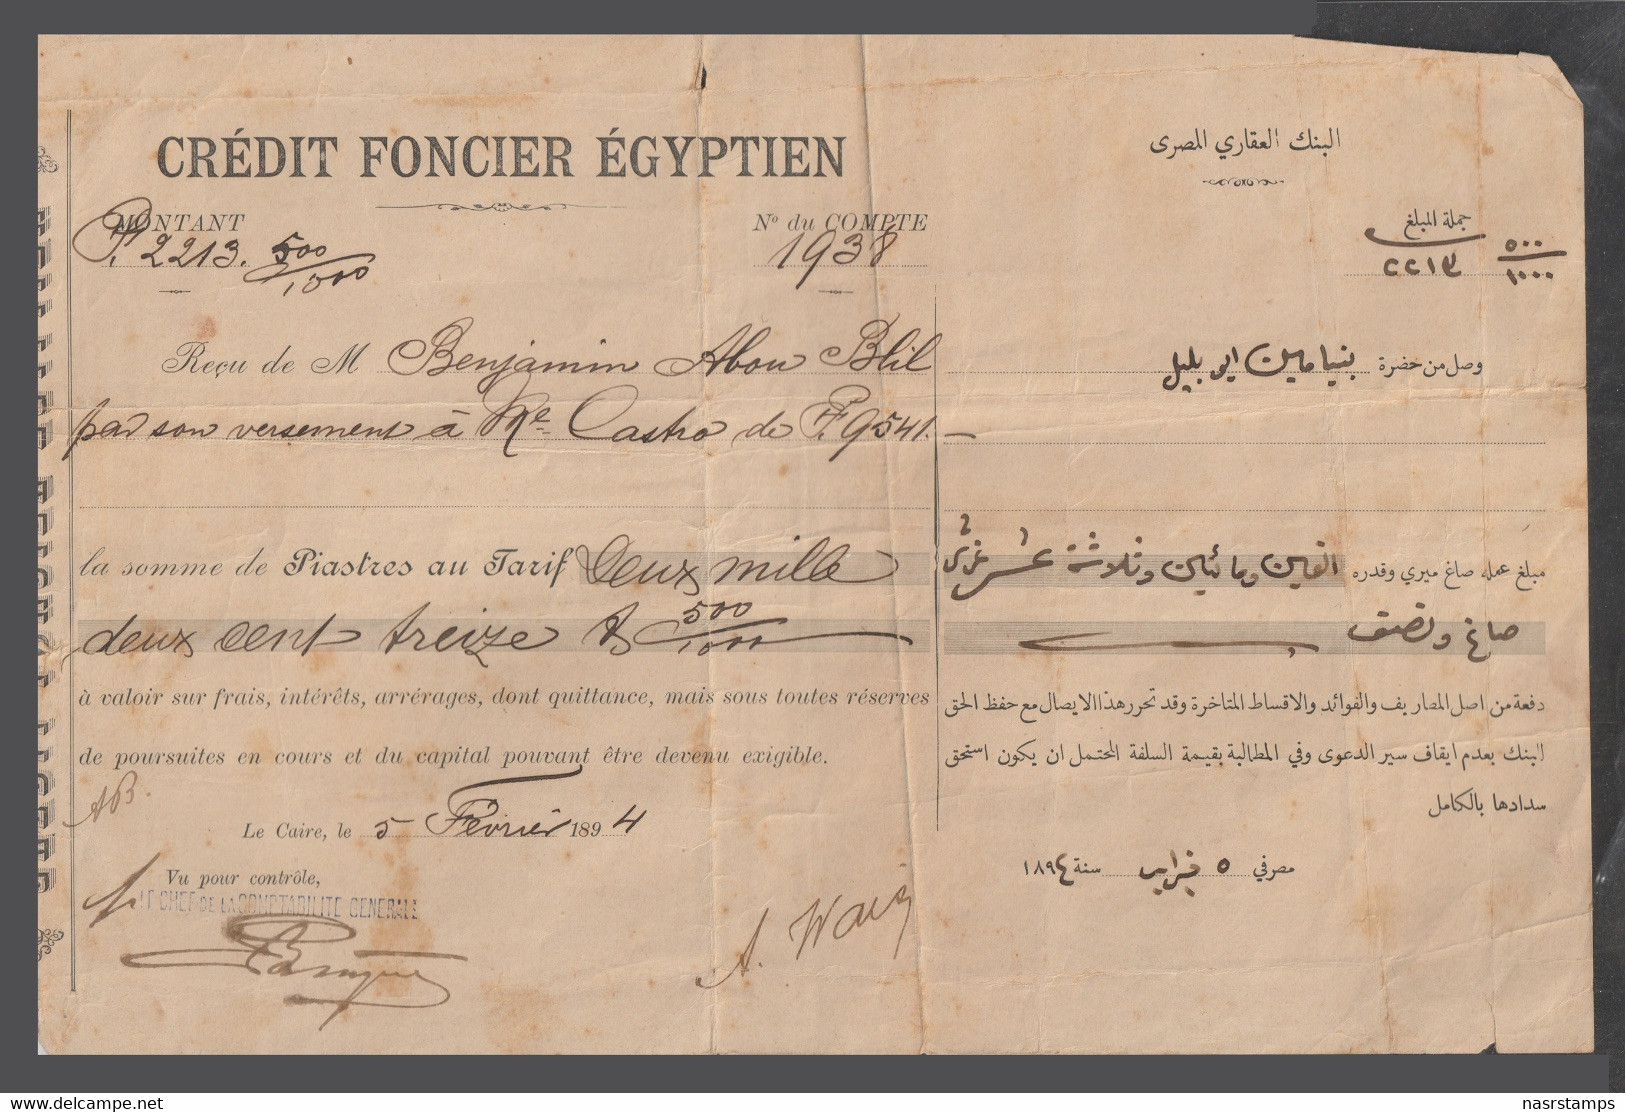 CRÉDIT FONCIER ÉGYPTIEN
MONTANT
P. 2213. 500/1000
Nº du COMPTE
1938
Reçu de M Benjamin Abou Blil
par son versement à Me Castro de P.T. 9541.
la somme de Piastres au Tarif Deux mille
deux cent treize & 500/1000
à valoir sur frais, intérêts, arrérages, dont quittance, mais sous toutes réserves
de poursuites en cours et du capital pouvant être devenu exigible.
AB.
Le Caire, le 5 Février 1894
Vu pour contrôle,
LE CHEF DE LA COMPTABILITE GENERALE
A.
البنك العقاري المصرى
جملة المبلغ
٢٢١٣ ٥٠٠/١٠٠٠
وصل من حضرة بنيامين ابو بليل
مبلغ عمله صاغ ميري وقدره الفين ومائتين وثلاثة عشر غرش
صاغ ونصف
دفعة من اصل المصاريف والفوائد والاقساط المتاخرة وقد تحرر هذا الايصال مع حفظ الحق
لبنك بعدم ايقاف سير الدعوى وفي المطالبة بقيمة السلفة المحتمل ان يكون استحق
سدادها بالكامل
مصر في ٥ فبراير سنة ١٨٩٤
www.delcampe.net
nasrstamps